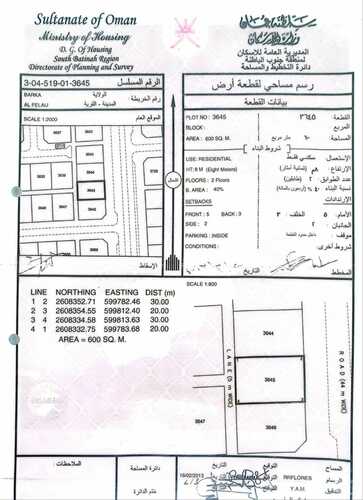 Sultanate of Oman
Ministry of Housing
D. G. Of Housing
South Batinah Region
Directorate of Planning and Survey
سلطنة عمان
وزارة الإسكان
المديرية العامة للإسكان
لمنطقة جنوب الباطنة
دائرة التخطيط والمساحة
3-04-519-01-3645
الرقم المسلسل
رسم مساحي لقطعة أرض
BARKA
الولاية
رقم الخريطة
AL FELAIJ
المدينة - القرية
SCALE 1:2000
الموقع العام
بيانات القطعة
PLOT NO : 3645
٣٦٤٥
القطعة
BLOCK
المربع
AREA : 600 SQ. M.
متر مربع
٦٠٠
شروط البناء
USE : RESIDENTIAL
سكني فقط
HT: 8 M (Meters)
(ثمانية أمتار)
٨م
الارتفاع
FLOORS : 2 Floors
(طابقين)
٢
عدد الطوابق
B. AREA : 40%
(أربعون بالمائة)
٤٠٪
نسبة البناء
SETBACKS
الارتدادات
FRONT : 5
BACK : 3
الخلف ٣
الأمام ٥
SIDE : 2
الجانبان ٢
PARKING : INSIDE
داخل حدود القطعة
موقف
CONDITION :
شروط أخرى
الإسقاط
3643
3644
3645
3646
LINE NORTHING EASTING DIST (m)
1 2 2608352.71 599782.46 30.00
2 3 2608354.55 599812.40 20.00
3 4 2608334.58 599813.63 30.00
4 1 2608332.75 599783.68 20.00
AREA = 600 SQ. M.
SCALE 1:800
3644
3645
3646
3647
LANE (9 m WIDE)
ROAD (44 m WIDE)
الملاحظات
دائرة المساحة
ختم الدائرة
16/02/2013
RRFLORES
المساح
الرسام
Y.A.M.
التدقيق